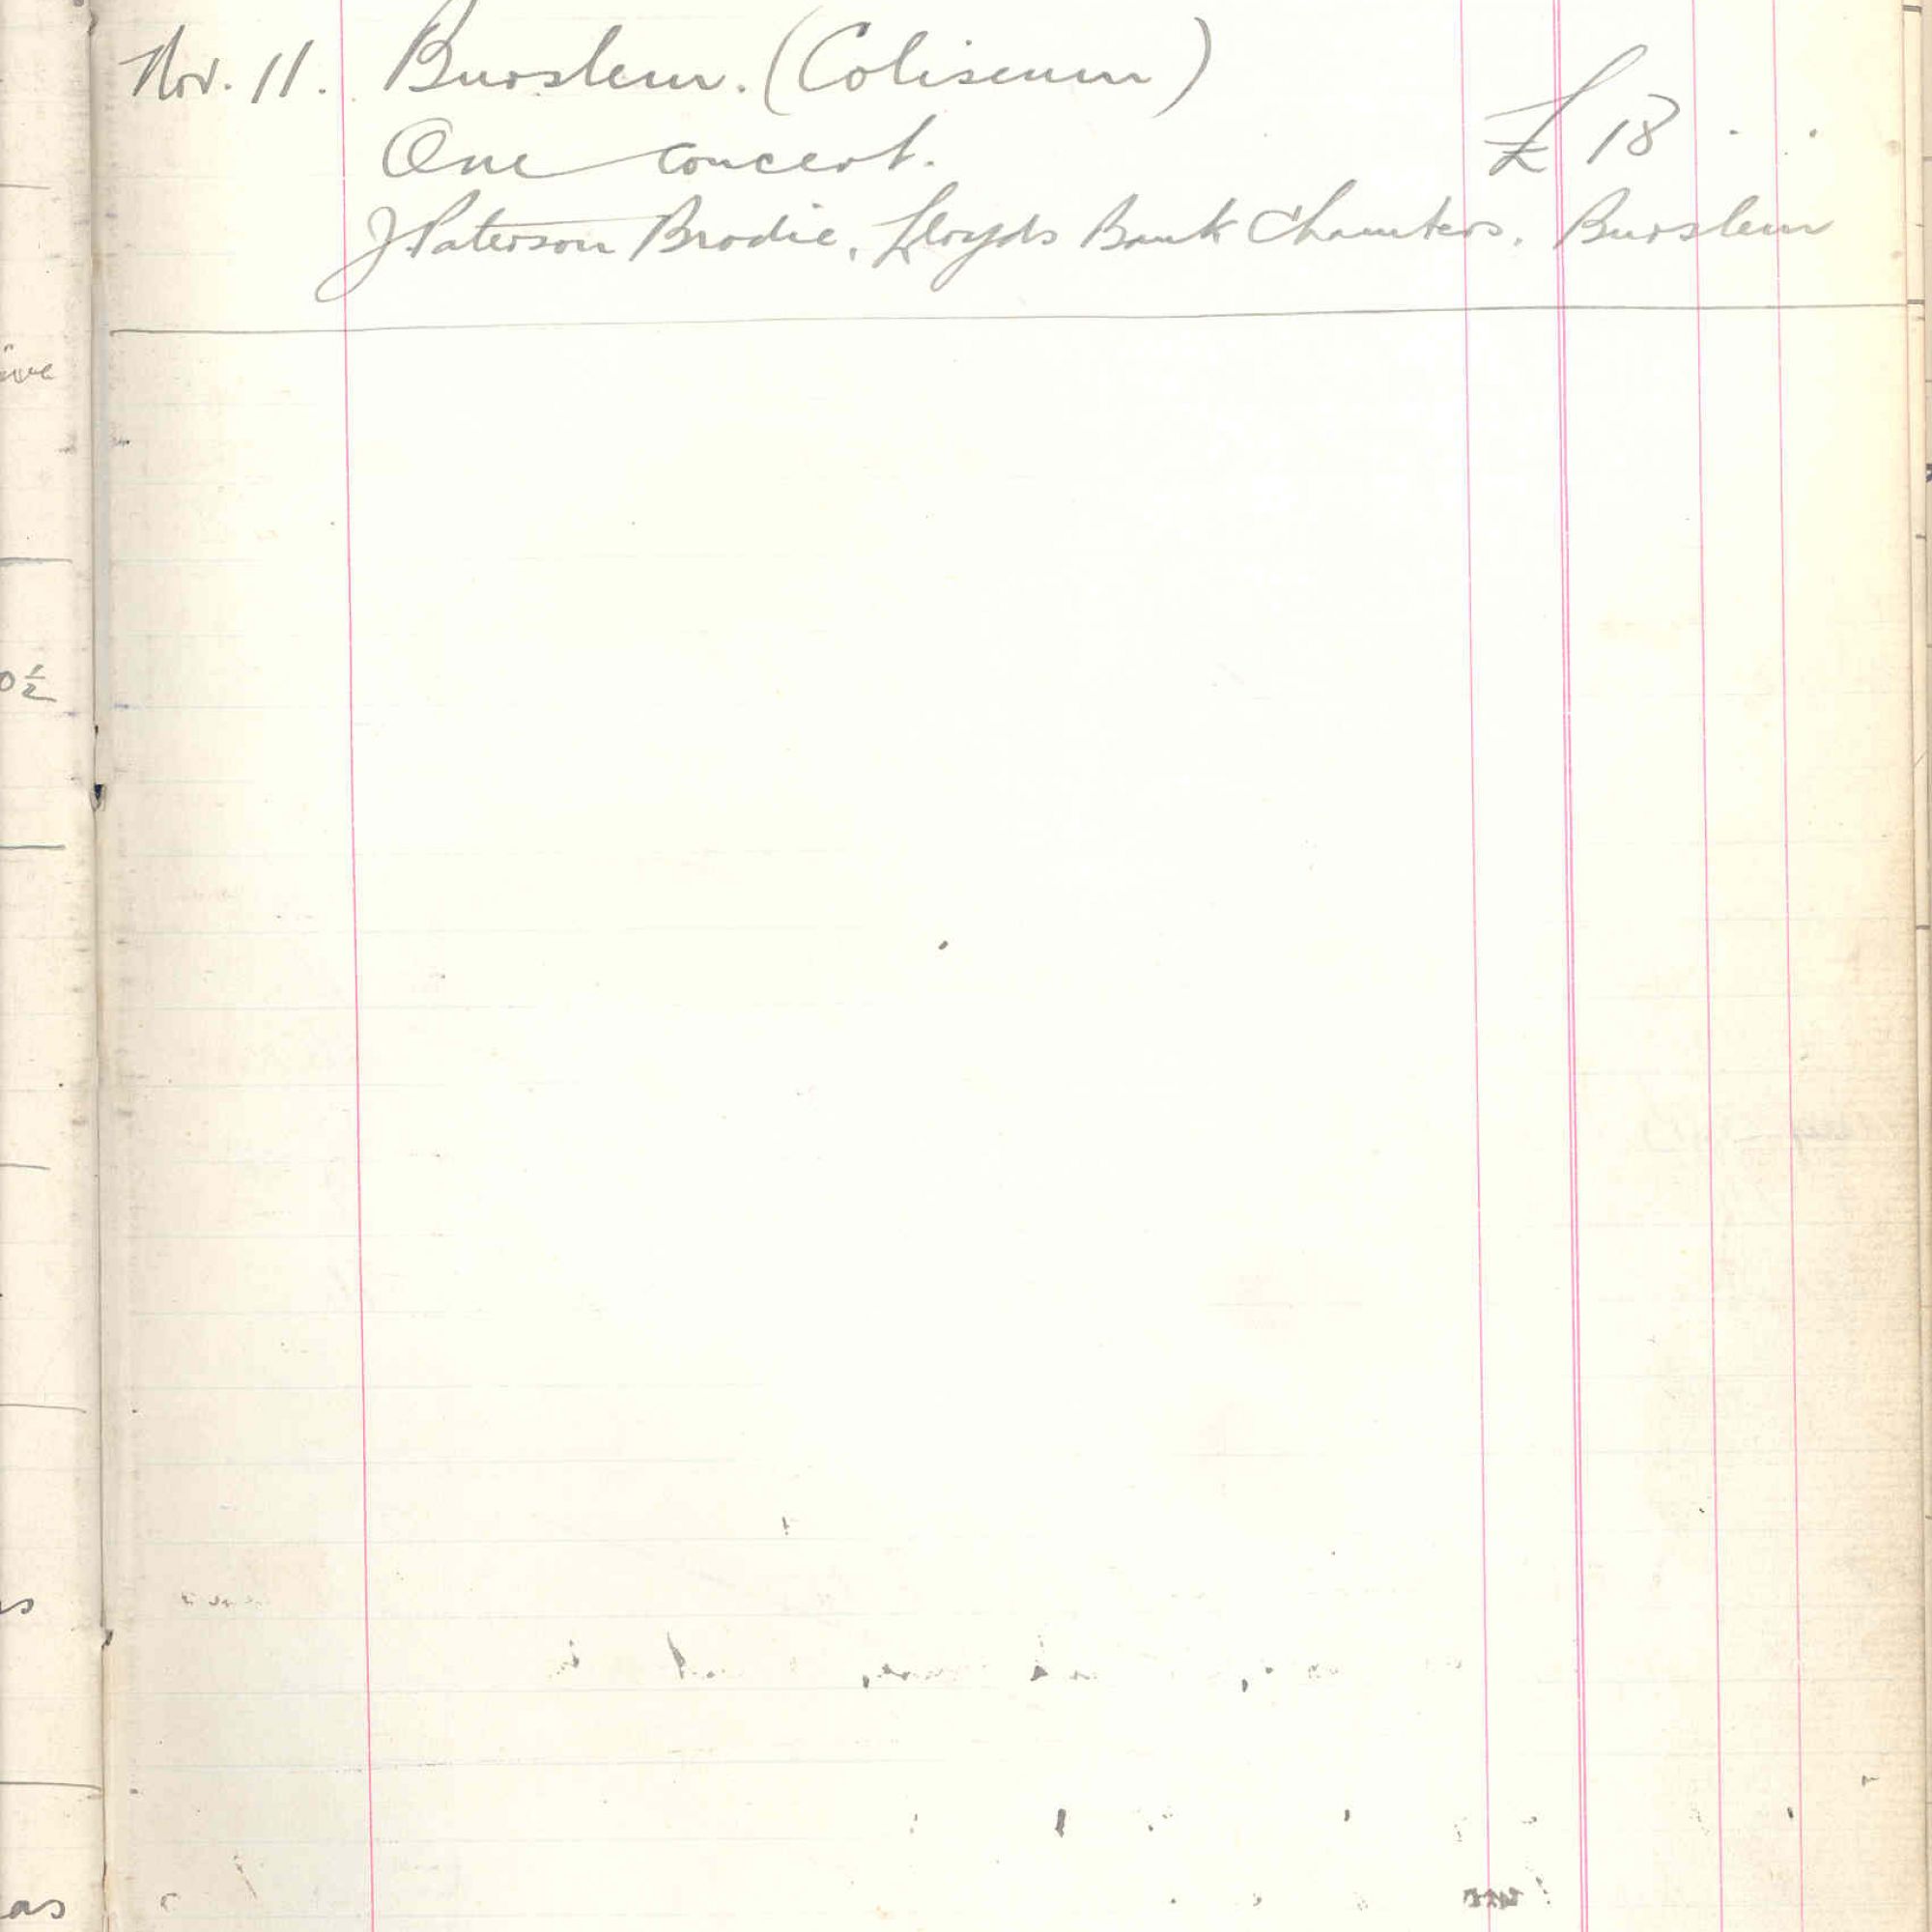 Nov. 11. Burslem. (Coliseum)
One concert. £ 18 . .
J Paterson Brodie, Lloyds Bank Chambers, Burslem
ive
0½
s
as